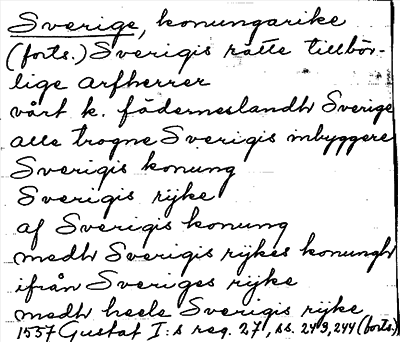 Sverige, konungarike
(forts.) Sverigis rätte tillbör-
lige arfherrer
vårt k. fäderneslandh Sverige
alle trogne Sverigis inbyggere
Sverigis konung
Sverigis rijke
af Sverigis konung
medh Sverigis rijkes konungh
ifrån Sveriges rijke
medh heele Sverigis rijke
1557 Gustaf I:s reg. 27, ss. 243, 244 (forts.)